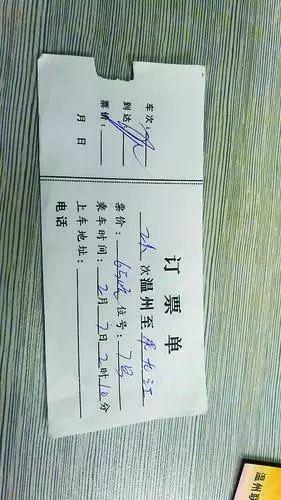 订票单
次温州至九江
票价：650元 位号：7号
乘车时间：2月7日2时10分
上车地址：
电话
车次：
到达：
票价：
月 日
温州